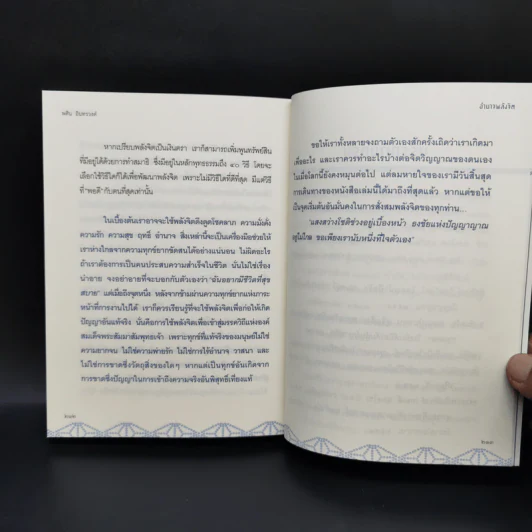 ทศิบ อินทรวงค์
หากเปรียบพลังจิตเป็นเงินตรา เราก็สามารถเพิ่มพูนทรัพย์สิน
ที่มีอยู่ได้ด้วยการทำสมาธิ ซึ่งมีอยู่ในหลักพุทธธรรมถึง ๔๐ วิธี โดยจะ
เลือกใช้วิธีใดก็ได้เพื่อพัฒนาพลังจิต เพราะไม่มีวิธีใดที่ดีที่สุด มีแต่วิธี
ที่ “พอดี” กับตนที่สุดเท่านั้น
ในเบื้องต้นเราอาจจะใช้พลังจิตดึงดูดโชคลาภ ความมั่งคั่ง
ความรัก ความสุข ฤทธิ์ อำนาจ สิ่งเหล่านี้จะเป็นเครื่องมือช่วยให้
เราห่างไกลจากความทุกข์ยากขัดสนได้อย่างแน่นอน ไม่ผิดอะไร
ถ้าเราต้องการเป็นคนประสบความสำเร็จในชีวิต นั่นไม่ใช่เรื่อง
น่าอาย จงอย่าอายที่จะบอกกับตัวเองว่า ‘ฉันอยากมีชีวิตที่สุข
สบาย’ แต่เมื่อถึงจุดหนึ่ง หลังจากข้ามผ่านความทุกข์ยากแห่งภาระ
หน้าที่การงานไปได้ เราก็ควรเรียนรู้ที่จะใช้พลังจิตเพื่อก่อให้เกิด
ปัญญาอันแท้จริง นั่นคือการใช้พลังจิตเพื่อเข้าสู่มรรควิถีแห่งองค์
สมเด็จพระสัมมาสัมพุทธเจ้า เพราะทุกข์ที่แท้จริงของมนุษย์ไม่ใช่
ความยากจน ไม่ใช่ความพ่ายรัก ไม่ใช่การไร้อำนาจ วาสนา และ
ไม่ใช่การขาดซึ่งวัตถุสิ่งของใดๆ หากแต่เป็นทุกข์อันเกิดจาก
การขาดซึ่งปัญญาในการเข้าถึงความจริงอันพิสุทธิ์เที่ยงแท้
อำนาจพลังจิต
ขอให้เราทั้งหลายจงถามตัวเองสักครั้งเถิดว่าเราเกิดมา
เพื่ออะไร และเราควรทำอะไรบ้างต่อจิตวิญญาณของตนเอง
ในเมื่อโลกนี้ยังคงหมุนต่อไป แต่ลมหายใจของเรามีวันสิ้นสุด
การเดินทางของหนังสือเล่มนี้ได้มาถึงที่สุดแล้ว หากแต่ขอให้
เป็นจุดเริ่มต้นอันมั่นคงในการสั่งสมพลังจิตของทุกท่าน...
‘แสงสว่างโชติช่วงอยู่เบื้องหน้า ธงชัยแห่งปัญญาญาณ
อยู่ไม่ไกล ขอเพียงเรานับหนึ่งที่ใจตัวเอง’